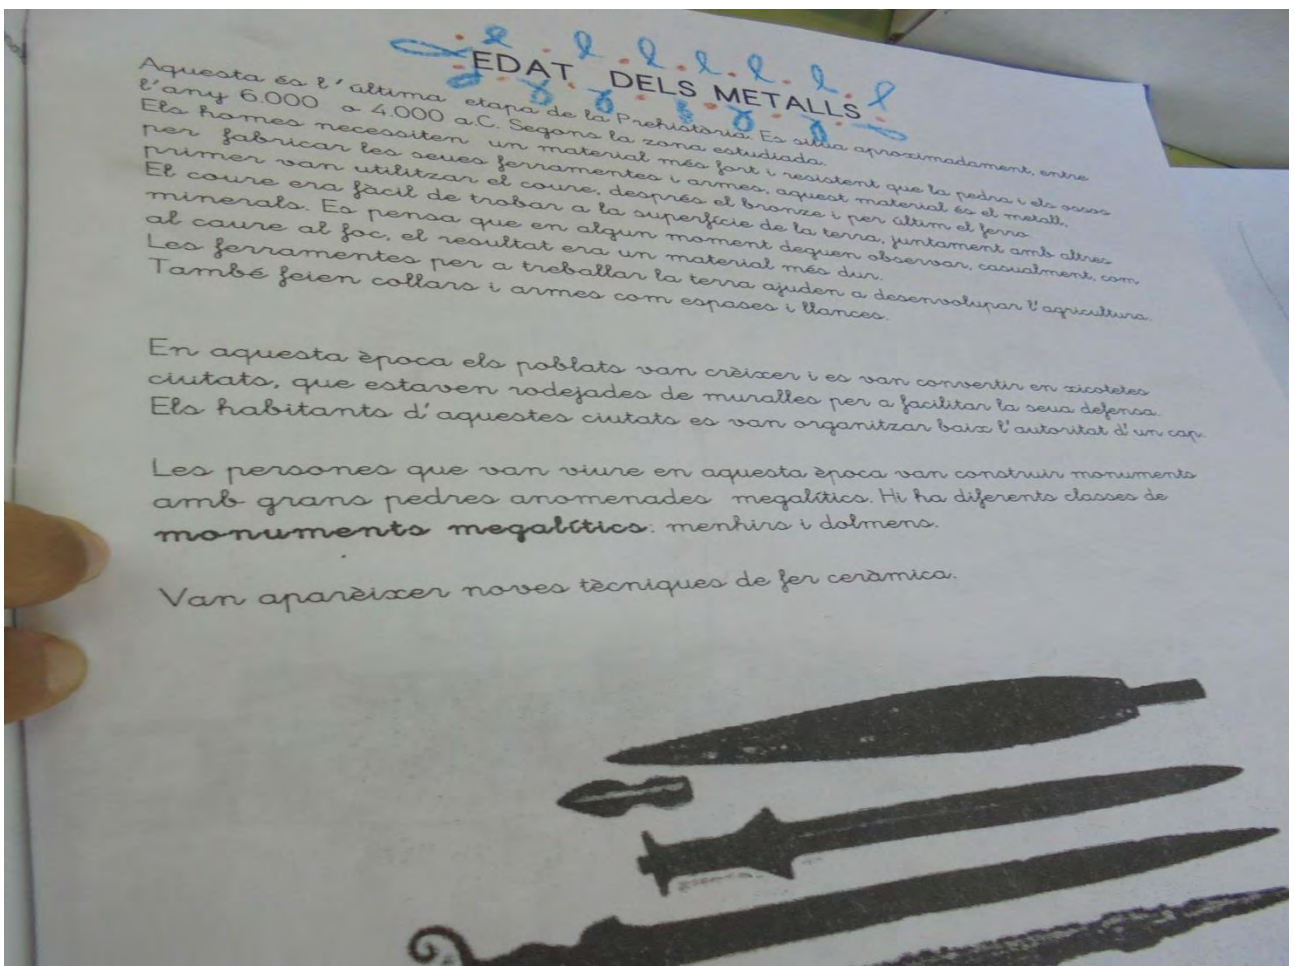 EDAT DELS METALLS
Aquesta és l'última etapa de la Prehistòria. Es situa aproximadament, entre
l'any 6.000 o 4.000 a.C. Segons la zona estudiada.
Els homes necessiten un material més fort i resistent que la pedra i els ossos
per fabricar les seues ferramentes i armes, aquest material és el metall,
primer van utilitzar el coure, després el bronze i per últim el ferro.
El coure era fàcil de trobar a la superfície de la terra, juntament amb altres
minerals. Es pensa que en algun moment deguen observar, casualment, com
al caure al foc, el resultat era un material més dur.
Les ferramentes per a treballar la terra ajuden a desenvolupar l'agricultura.
També feien collars i armes com espases i llances.
En aquesta època els poblats van crèixer i es van convertir en xicotetes
ciutats, que estaven rodejades de muralles per a facilitar la seua defensa.
Els habitants d'aquestes ciutats es van organitzar baix l'autoritat d'un cap.
Les persones que van viure en aquesta època van construir monuments
amb grans pedres anomenades megalítics. Hi ha diferents classes de
monuments megalítics: menhirs i dolmens.
Van aparèixer noves tècniques de fer ceràmica.